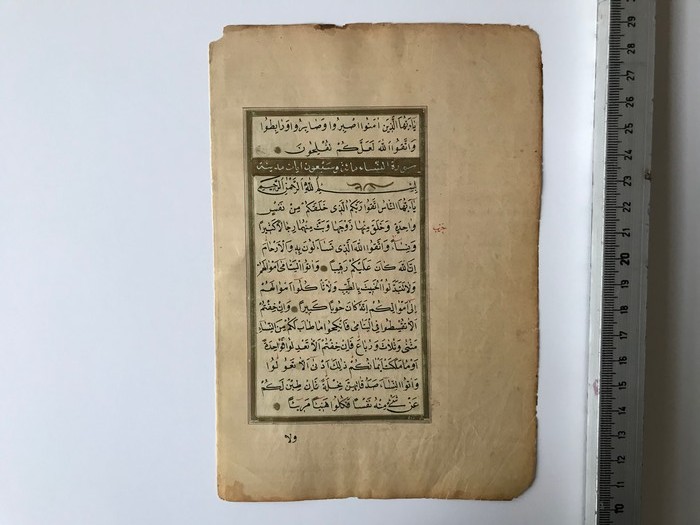 يَا أَيُّهَا الَّذِينَ اٰمَنُوا اصْبِرُوا وَصَابِرُوا وَرَابِطُوا
وَاتَّقُوا اللّٰهَ لَعَلَّكُمْ تُفْلِحُونَ
سورة النساء مائة وسبعون ايات مدينة
بِسْمِ اللّٰهِ الرَّحْمٰنِ الرَّحِيمِ
يَا أَيُّهَا النَّاسُ اتَّقُوا رَبَّكُمُ الَّذِي خَلَقَكُمْ مِنْ نَفْسٍ
وَاحِدَةٍ وَخَلَقَ مِنْهَا زَوْجَهَا وَبَثَّ مِنْهُمَا رِجَالًا كَثِيرًا
وَنِسَاءً وَاتَّقُوا اللّٰهَ الَّذِي تَسَاءَلُونَ بِهِ وَالْاَرْحَامَ
اِنَّ اللّٰهَ كَانَ عَلَيْكُمْ رَقِيبًا وَاٰتُوا الْيَتَامٰى اَمْوَالَهُمْ
وَلَا تَتَبَدَّلُوا الْخَبِيثَ بِالطَّيِّبِ وَلَا تَأْكُلُوا اَمْوَالَهُمْ
اِلٰى اَمْوَالِكُمْ اِنَّهُ كَانَ حُوبًا كَبِيرًا وَاِنْ خِفْتُمْ
اَلَّا تُقْسِطُوا فِي الْيَتَامٰى فَانْكِحُوا مَا طَابَ لَكُمْ مِنَ النِّسَاءِ
مَثْنٰى وَثُلَاثَ وَرُبَاعَ فَاِنْ خِفْتُمْ اَلَّا تَعْدِلُوا فَوَاحِدَةً
اَوْ مَا مَلَكَتْ اَيْمَانُكُمْ ذٰلِكَ اَدْنٰى اَلَّا تَعُولُوا
وَاٰتُوا النِّسَاءَ صَدُقَاتِهِنَّ نِحْلَةً فَاِنْ طِبْنَ لَكُمْ
عَنْ شَيْءٍ مِنْهُ نَفْسًا فَكُلُوهُ هَنِيئًا مَرِيئًا
ولا
حزب
29
28
27
26
25
24
23
22
21
20
19
18
17
16
15
14
13
12
11
10